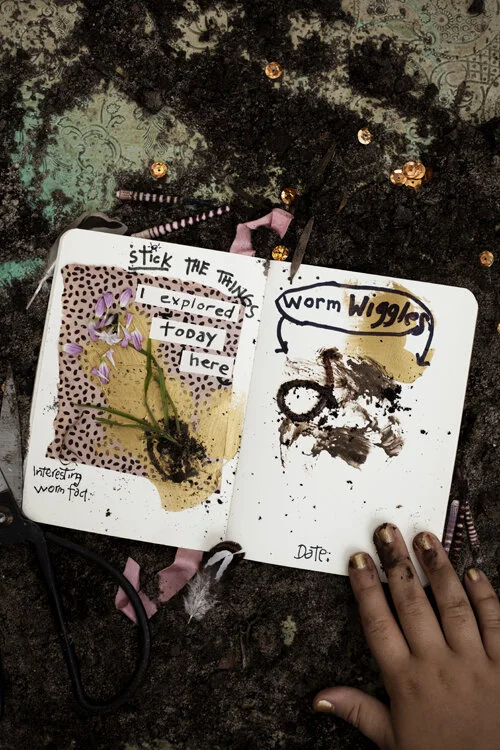 stick THE THINGS
I explored
today
here
Interesting
worm fact:
Worm Wiggles
Date: